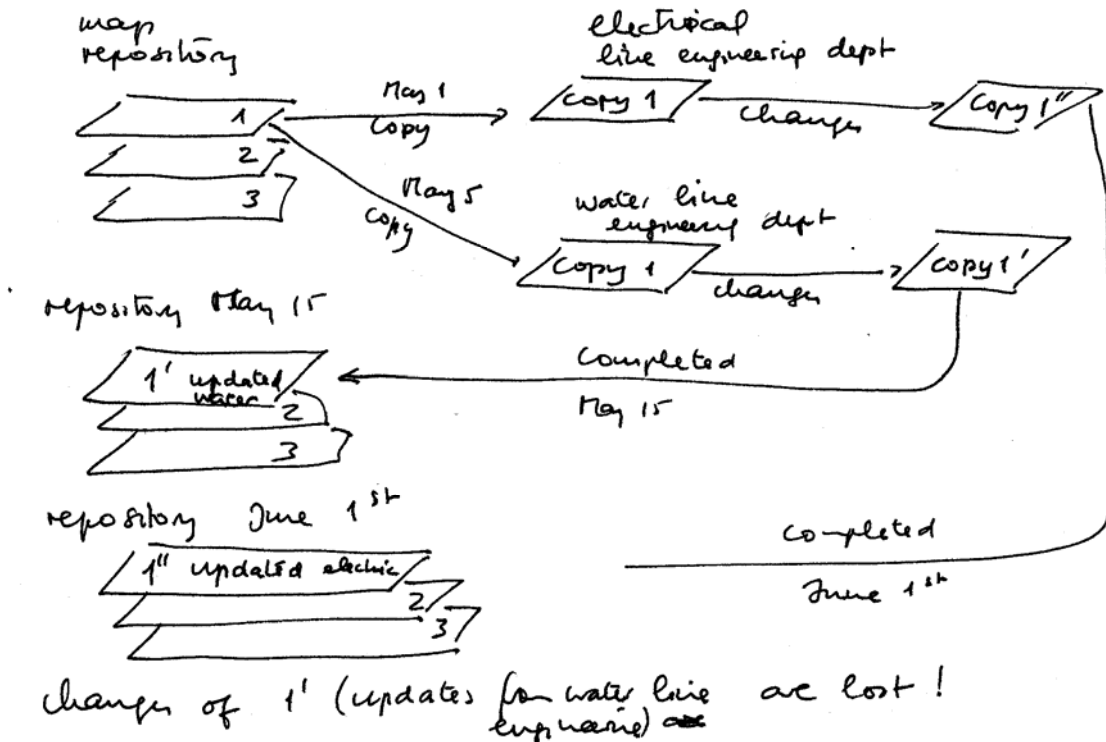 map
repository
electrical
line engineering dept
1
2
3
May 1
copy
copy 1
changes
copy 1"
May 5
copy
water line
engineering dept
copy 1
changes
copy 1'
repository May 15
1' updated
water
2
3
completed
May 15
repository June 1st
1" updated electric
2
3
completed
June 1st
changes of 1' (updates from water line are lost !
engineerie)